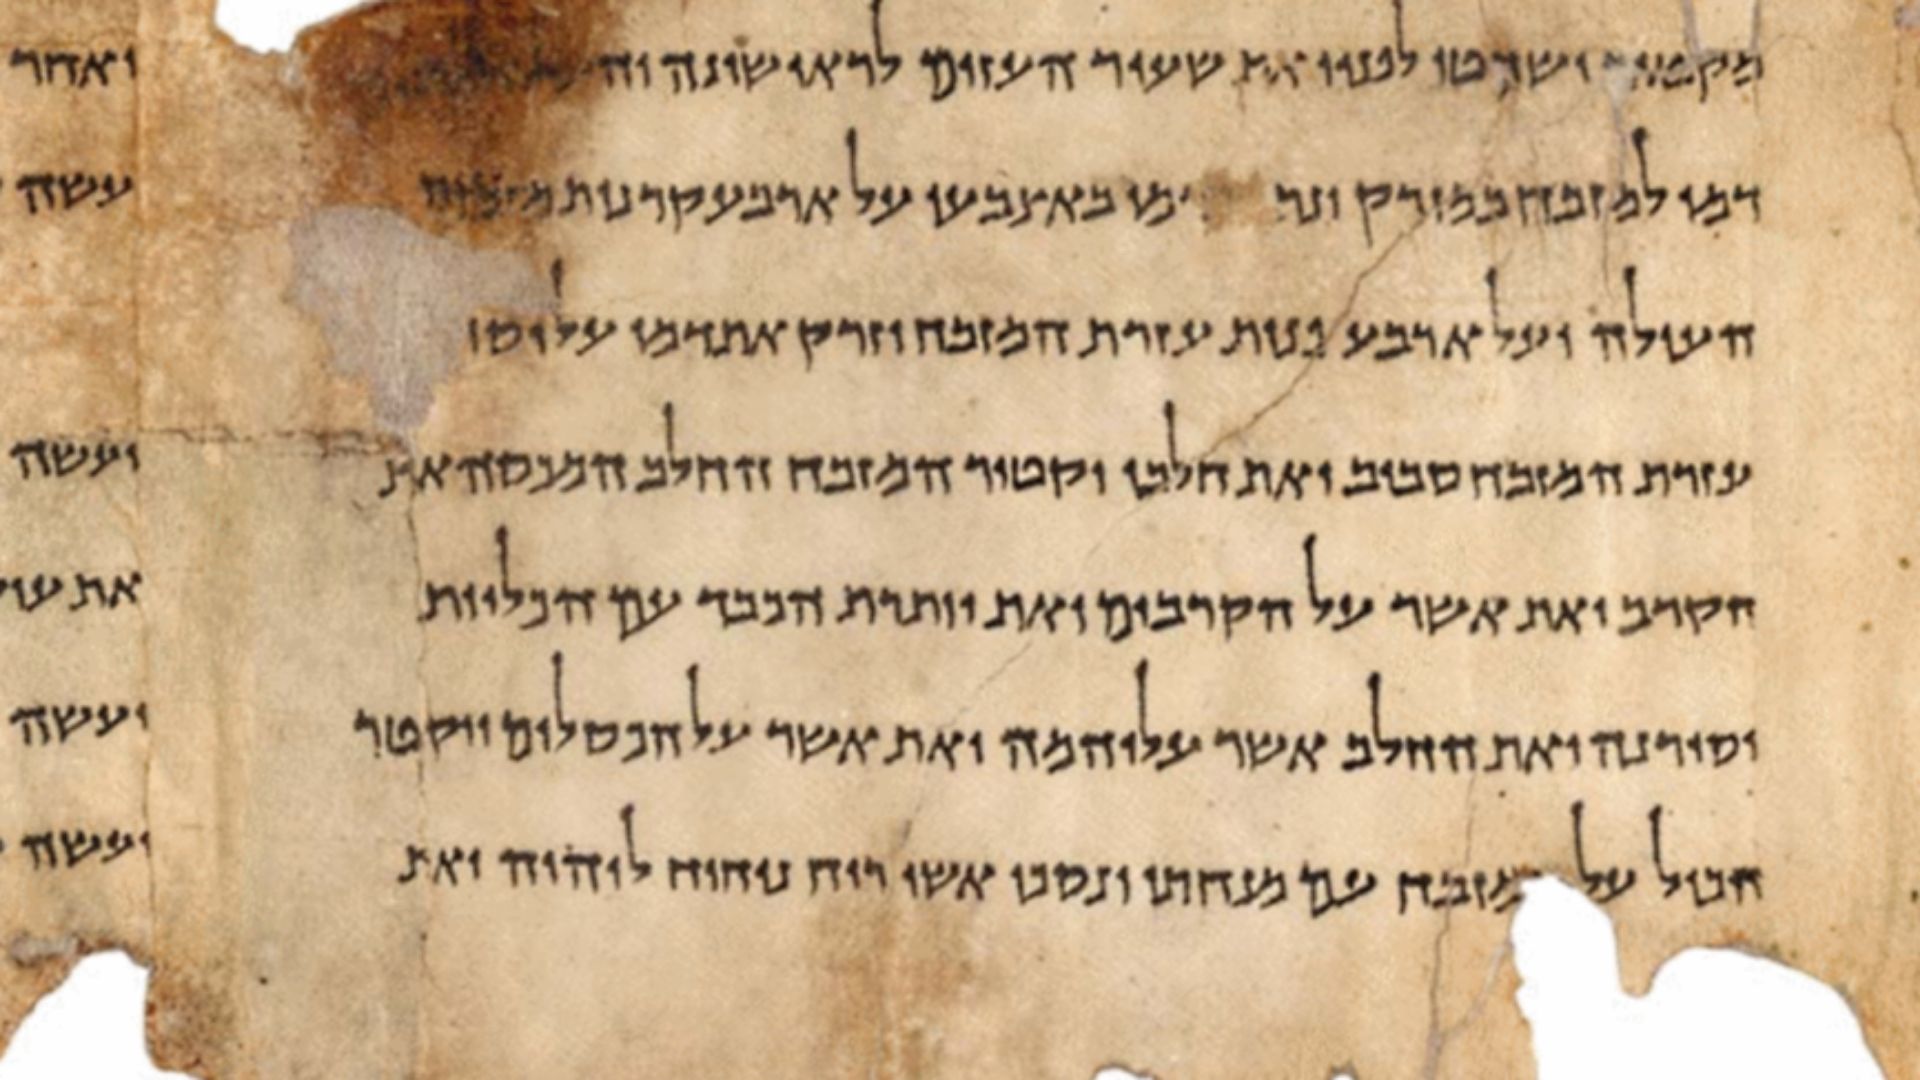 לפניו את שעיר העזים לראישונה
דמו למזבח במזרק באצבעו על ארבע קרנות מזבח
העולה ועל ארבע פנות עזרת המזבח וזרק את דמו על יסוד
עזרת המזבח סביב ואת חלבו יקטיר המזבח החלב המכסה את
הקרב ואת אשר על הקרבים ואת יותרת הכבד עם הכליות
יסירנה ואת החלב אשר עליהמה ואת אשר על הכסלים ויקטר
הכול על עם מנחתו ונסכו אשי ריח ניחוח ליהוה ואת
ואחר
עשה
ועשה
את
ועשה
ועשה